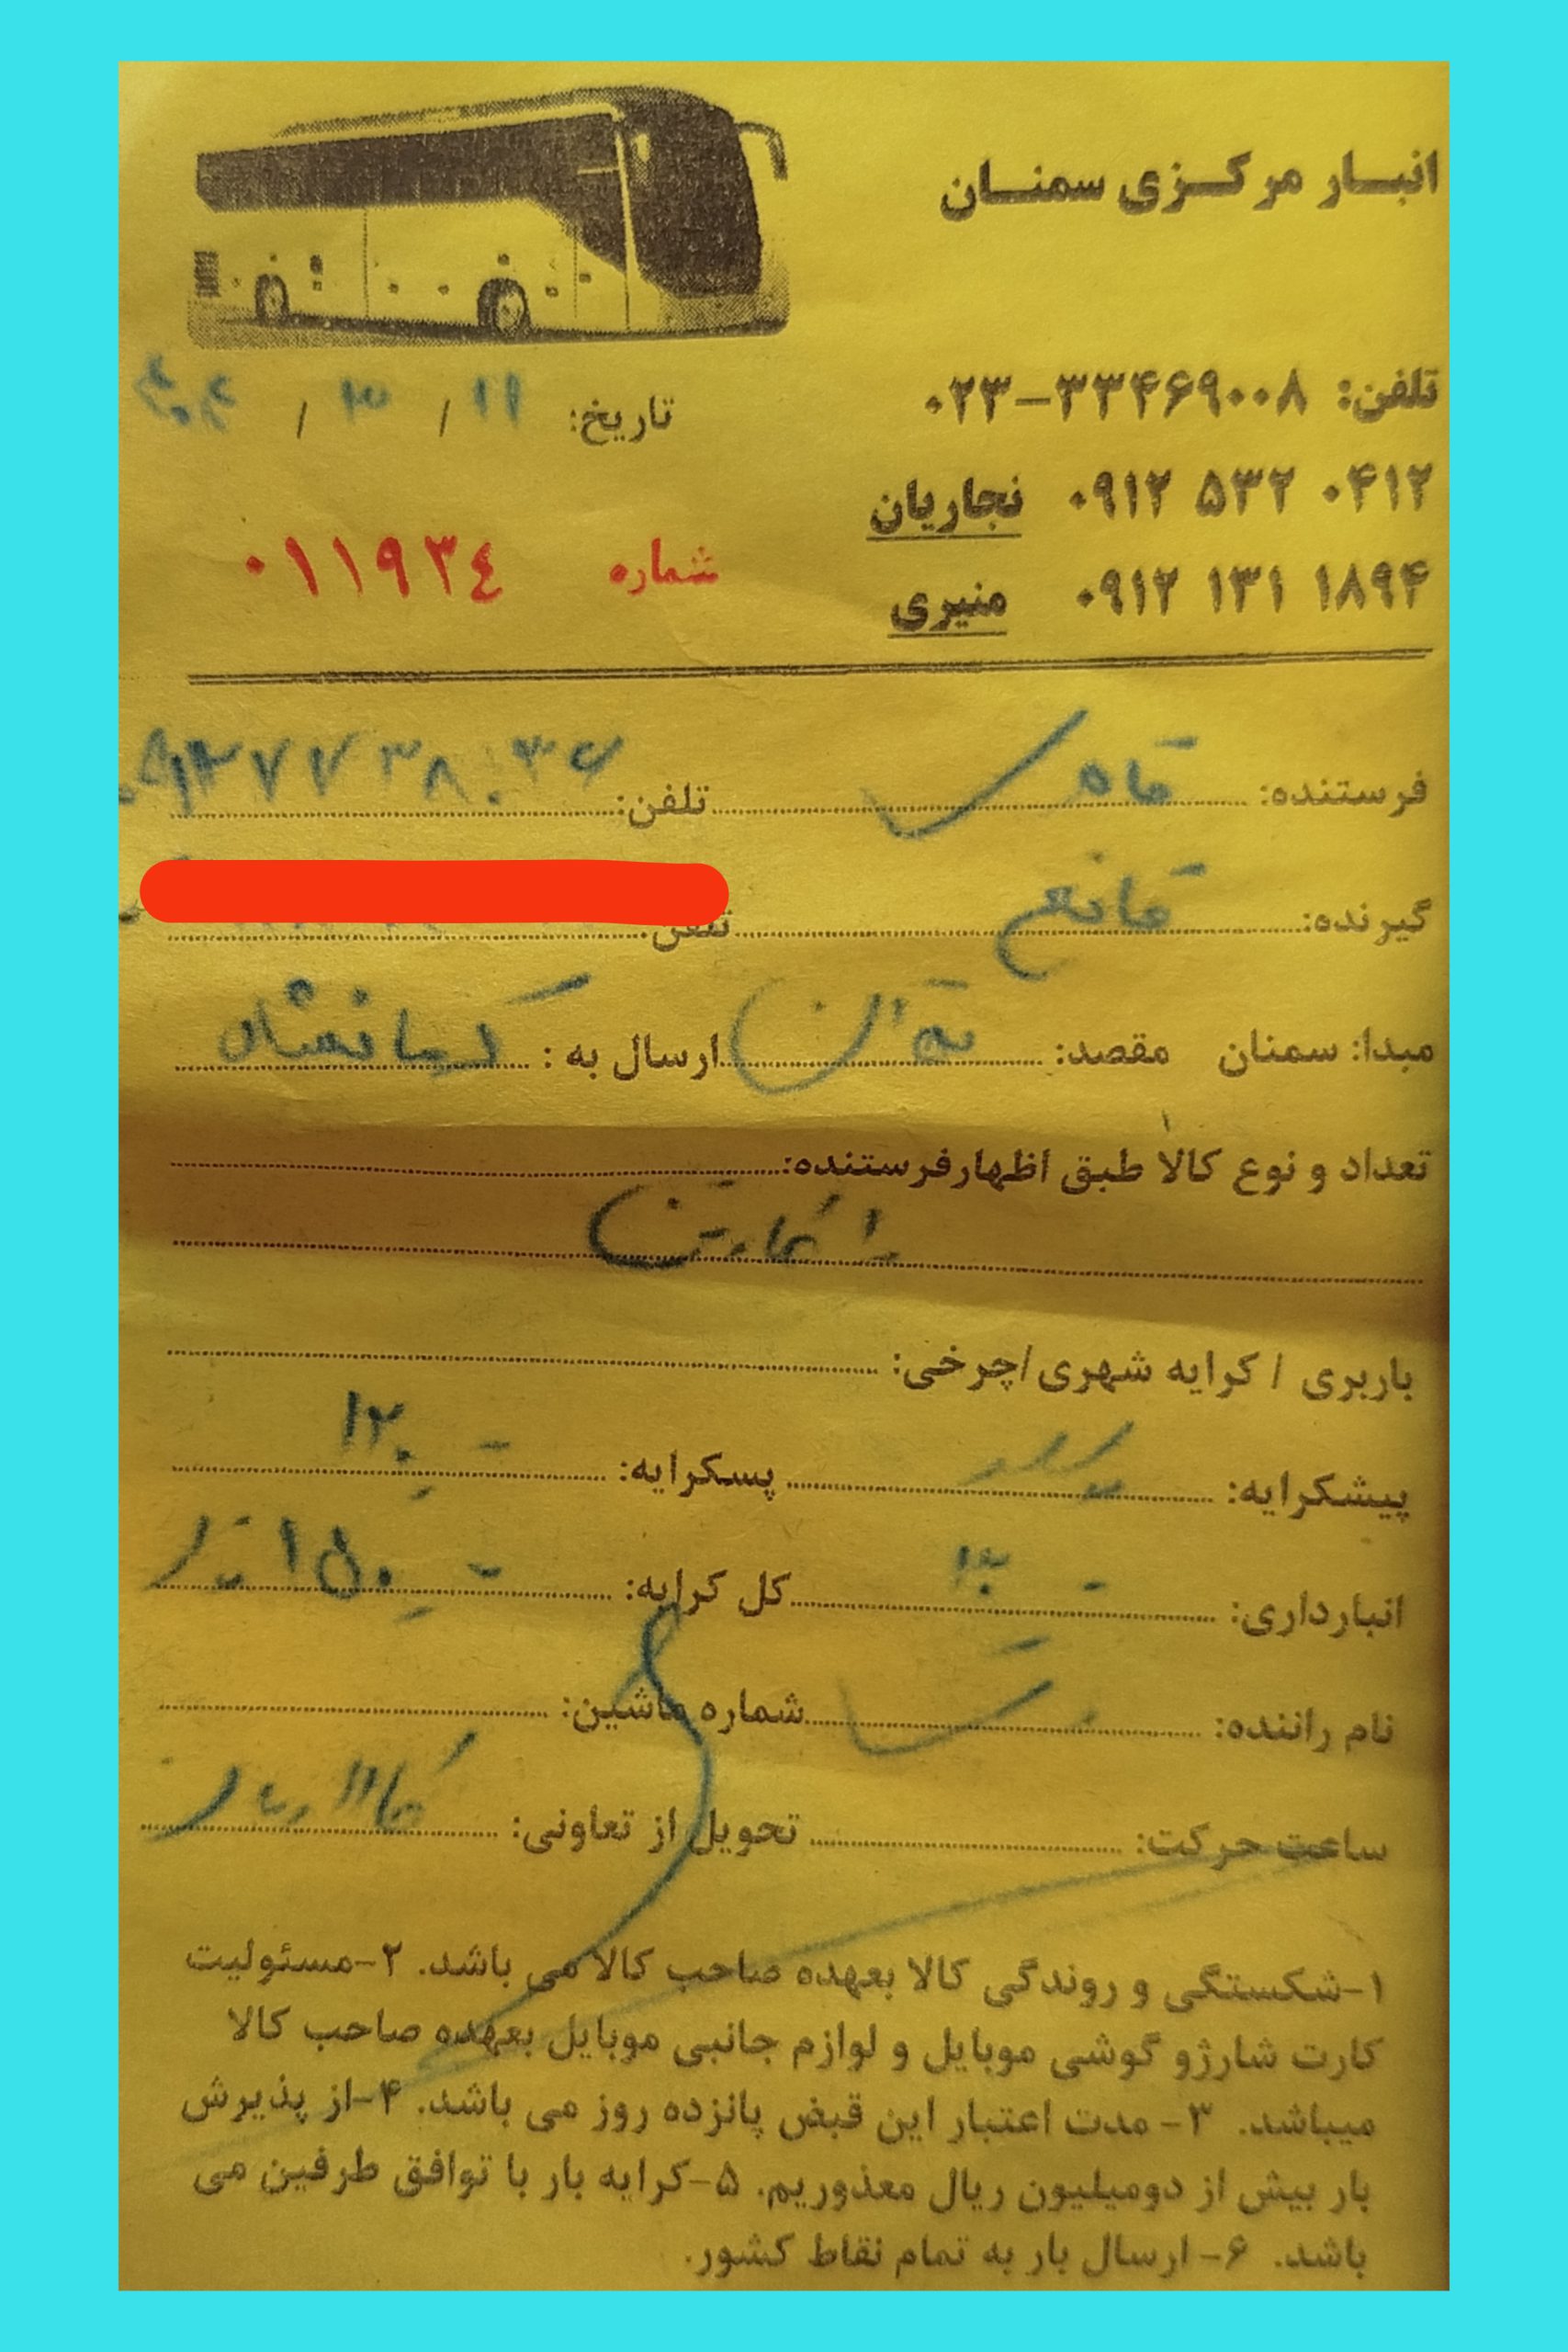 انبار مرکزی سمنان
تلفن: ۰۲۳-۳۳۴۶۹۰۰۸
تاریخ: ۱۱ / ۳ /
۰۹۱۲ ۵۳۲ ۰۴۱۲ نجاریان
شماره ۰۱۱۹۳۴
۰۹۱۲ ۱۳۱ ۱۸۹۴ منیری
فرستنده: تلفن:
گیرنده: قانع تلفن:
مبدا: سمنان مقصد: تهران ارسال به : کرمانشاه
تعداد و نوع کالا طبق اظهارفرستنده:
۱ کارتن
باربری / کرایه شهری/چرخی:
پیشکرایه: پسکرایه: ۱۲۰
انبارداری: ۳۰ کل کرایه: ۱۵۰
نام راننده: شماره ماشین:
ساعت حرکت: تحویل از تعاونی:
۱-شکستگی و روندگی کالا بعهده صاحب کالا می باشد. ۲-مسئولیت
کارت شارژو گوشی موبایل و لوازم جانبی موبایل بعهده صاحب کالا
میباشد. ۳- مدت اعتبار این قبض پانزده روز می باشد. ۴-از پذیرش
بار بیش از دومیلیون ریال معذوریم. ۵-کرایه بار با توافق طرفین می
باشد. ۶- ارسال بار به تمام نقاط کشور.